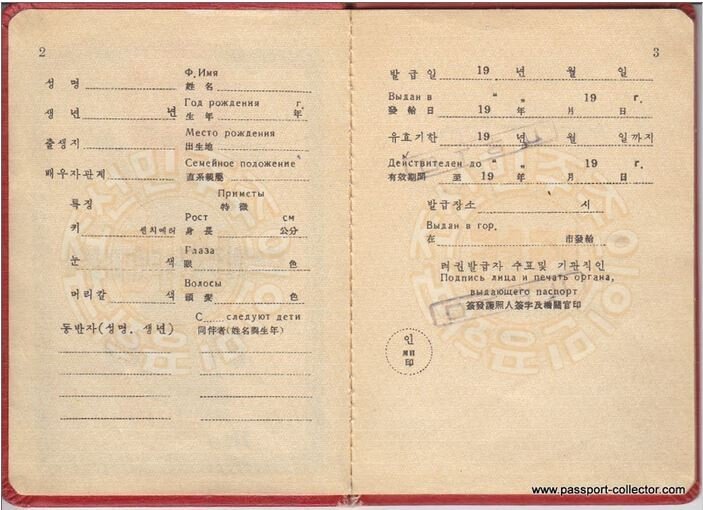 2
성 명
Ф. Имя
姓 名
생 년 년
Год рождения г.
生 年 年
출생지
Место рождения
出生地
배우자관계
Семейное положение
直系親屬
특징
Приметы
特徵
키 센치메터
Рост см
身長 公分
눈 색
Глаза
眼 色
머리칼 색
Волосы
頭髮 色
동반자(성명, 생년)
С следуют дети
同伴者(姓名與生年)
3
발급일 19 년 월 일
Выдан в „ „ 19 г.
發給日 19 年 月 日
유효기한 19 년 월 일까지
Действителен до „ „ 19 г.
有效期間 至 19 年 月 日
발급장소 시
Выдан в гор.
在 市發給
려권발급자 수표및 기관직인
Подпись лица и печать органа,
выдающего паспорт
簽發護照人簽字及機關官印
인
印
www.passport-collector.com